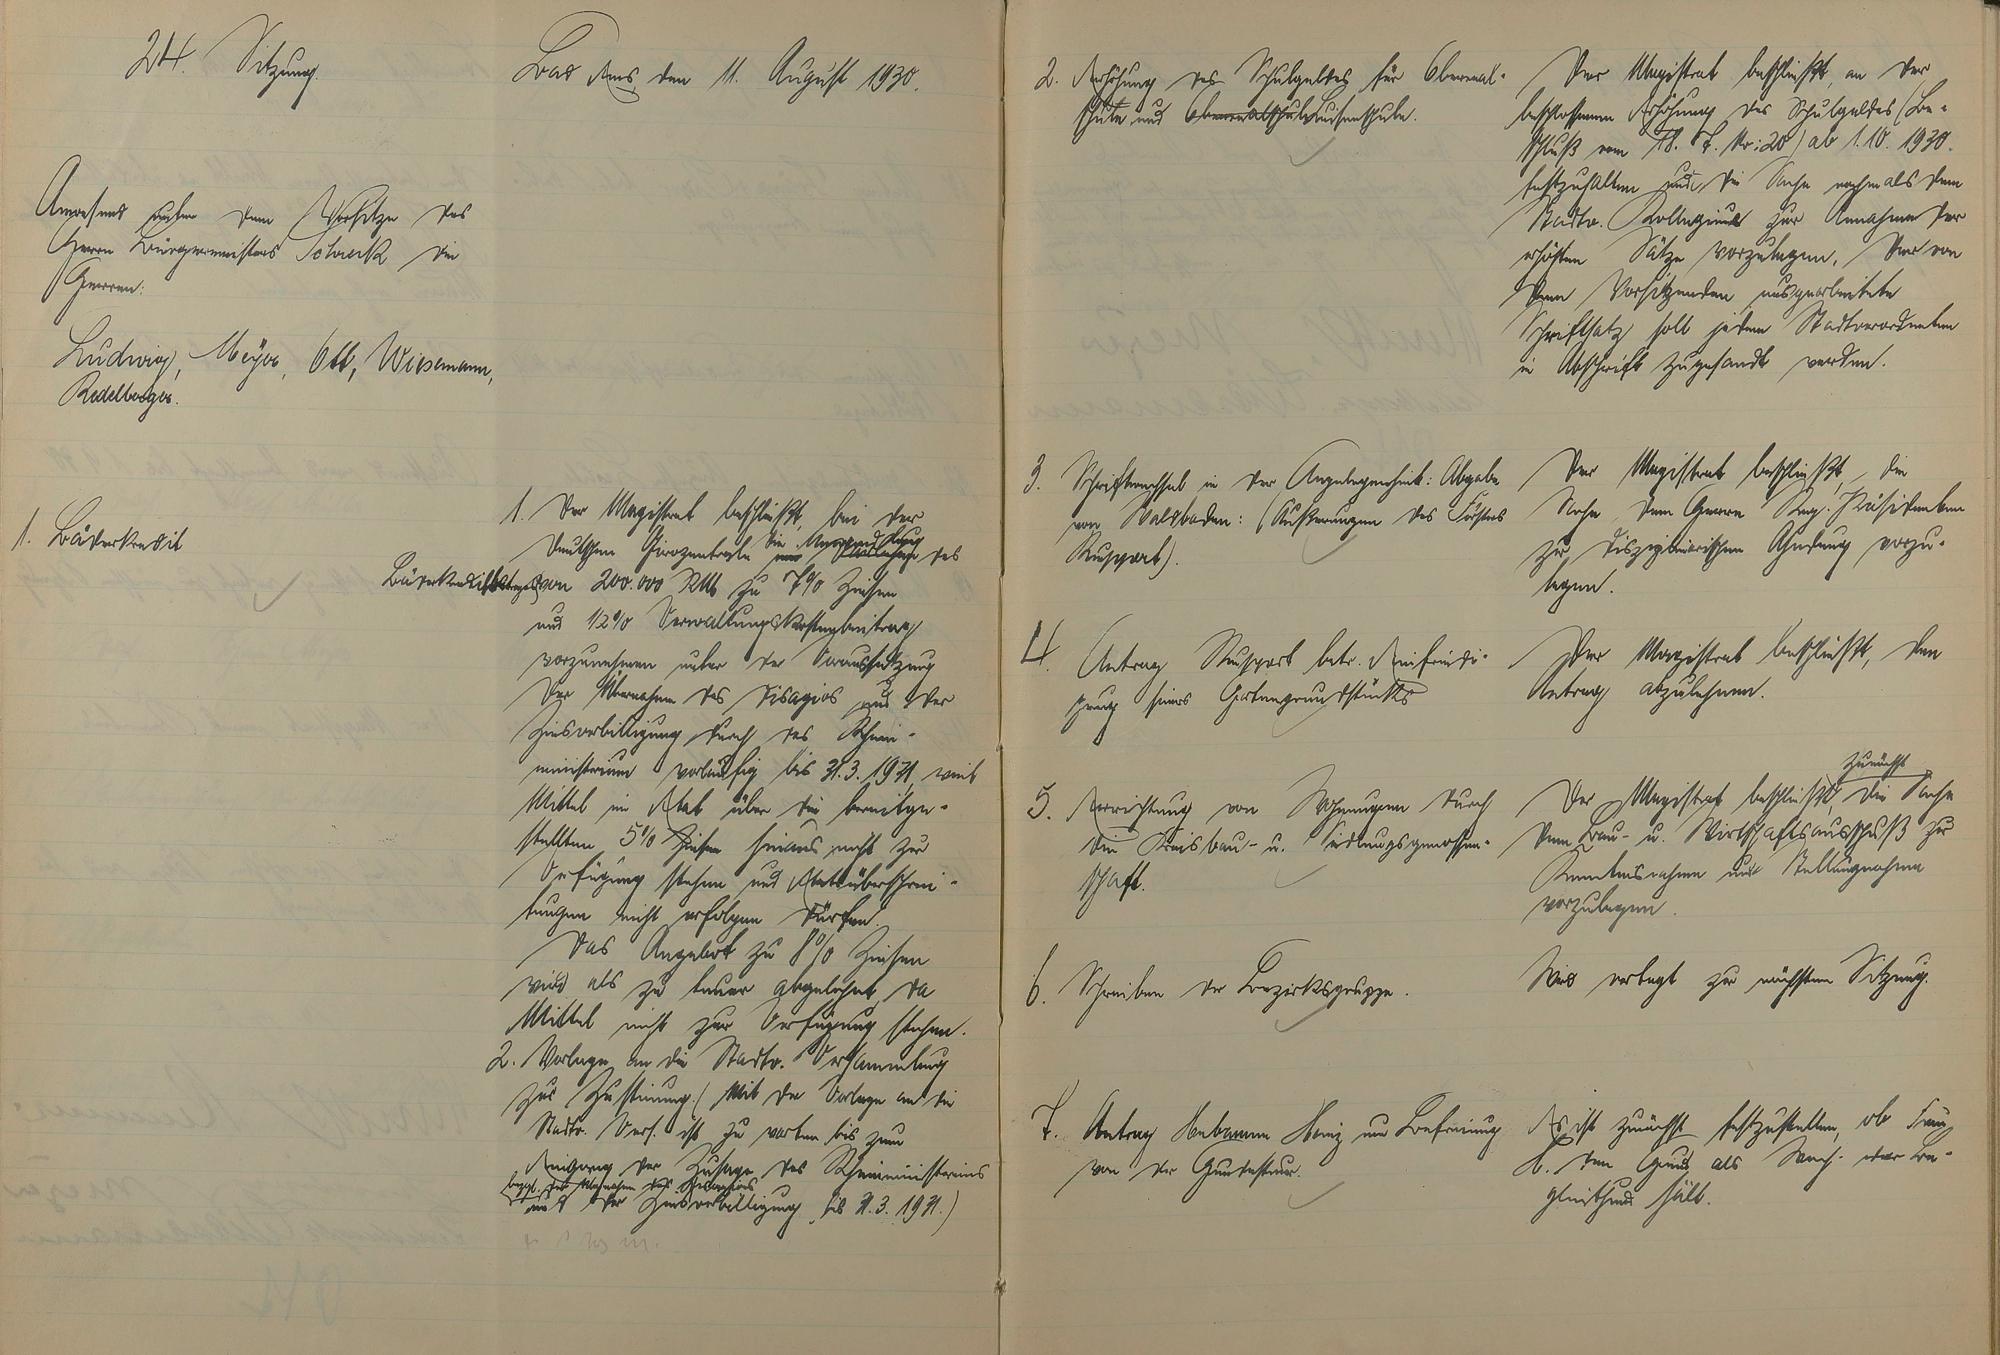 24. Sitzung.
Bad Ems, den 11. August 1930.
Anwesend unter dem Vorsitze des
Herrn Bürgermeisters Schreck die
Herren:
Ludwig, Meyer, Ott, Wiesemann,
Redelberger.
1. Bäderkredit
1. Der Magistrat beschließt, bei der
Deutschen Girozentrale die
des
Bäderkredits von 200.000 RM zu 7% Zinsen
und 1/2% Verwaltungskostenbeitrag
vorzunehmen unter der Voraussetzung
der Übernahme des Disagios und der
Zinsverbilligung durch das Rhein-
ministerium vorläufig bis 31.3.1931, weil
Mittel im Etat über die bereitge-
stellten 5% Zinsen hinaus nicht zur
Verfügung stehen und Etatsüberschrei-
tungen nicht erfolgen dürfen.
Das Angebot zu 8% Zinsen
wird als zu teuer abgelehnt, da
Mittel nicht zur Verfügung stehen.
2. Vorlage an die Stadtv. Versammlung
zur Zustimmung. (Mit der Vorlage an die
Stadtv. Vers. ist zu warten bis zum
Eingang der Zusage des Rheinministeriums
bezgl. der Übernahme des Disagios
und der Zinsverbilligung bis 31.3.1931.)
2. Erhöhung des Schulgeldes für Oberreal-
schule und Oberrealschule Luisenschule.
Der Magistrat beschließt, an der
beschlossenen Erhöhung des Schulgeldes (Be-
schluß vom 18. 7. Nr: 20) ab 1.10. 1930.
festzuhalten und die Sache nochmals dem
Stadtv. Kollegium zur Annahme der
erhöhten Sätze vorzulegen. Der von
dem Vorsitzenden ausgearbeitete
Schriftsatz soll jedem Stadtverordneten
in Abschrift zugesandt werden.
3. Schriftwechsel in der Angelegenheit: Abgabe
von Waldboden: (Äußerungen des Försters
Ruppert).
Der Magistrat beschließt, die
Sache dem Herrn Reg. Präsidenten
zur disziplinarischen Ahndung vorzu-
legen.
4. Antrag Ruppert betr. Einfriedi-
gung seines Gartengrundstücks
Der Magistrat beschließt, den
Antrag abzulehnen.
5. Errichtung von Wohnungen durch
die Kreisbau- u. Siedlungsgenossen-
schaft.
zunächst
Der Magistrat beschließt, die Sache
dem Bau- u. Wirtschaftsausschuß zur
Kenntnisnahme und Stellungnahme
vorzulegen.
6. Schreiben der Bezirksgruppe.
Wird vertagt zur nächsten Sitzung.
7. Antrag Hebamme Heinz um Befreiung
von der Hundesteuer.
Es ist zunächst festzustellen, ob Frau
H. den Hund als Wach- oder Be-
gleithund hält.